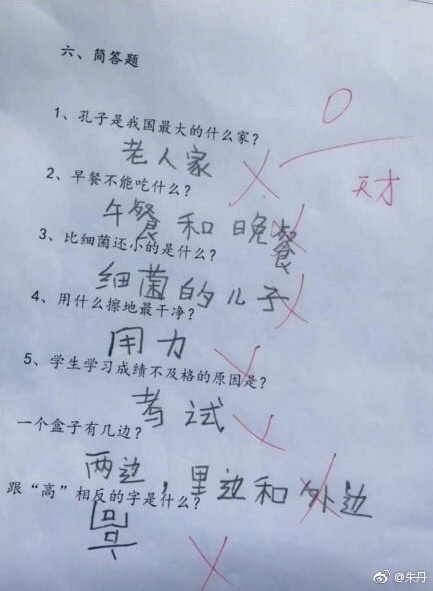 六、简答题
0
天才
1、孔子是我国最大的什么家?
老人家
2、早餐不能吃什么?
午餐和晚餐
3、比细菌还小的是什么?
细菌的儿子
4、用什么擦地最干净?
用力
5、学生学习成绩不及格的原因是?
考试
一个盒子有几边?
两边,里边和外边
跟“高”相反的字是什么?
@朱丹